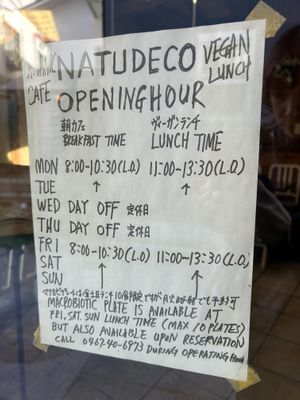 ORGANIC NATUDECO VEGAN
CAFE OPENING HOUR LUNCH
朝カフェ ヴィーガンランチ
BREAKFAST TIME LUNCH TIME
MON 8:00-10:30(L.O.) 11:00-13:30(L.O.)
TUE ↑ ↑
WED DAY OFF 定休日
THU DAY OFF 定休日
FRI 8:00-10:30(L.O) 11:00-13:30(L.O.)
SAT ↑ ↑
SUN
マクロビプレートは金土日ランチ10食限定ですが
MACROBIOTIC PLATE IS AVAILABLE AT
FRI, SAT, SUN LUNCH TIME (MAX 10 PLATES)
BUT ALSO AVAILABLE UPON RESERVATION
CALL 0467-40-6973 DURING OPERATING